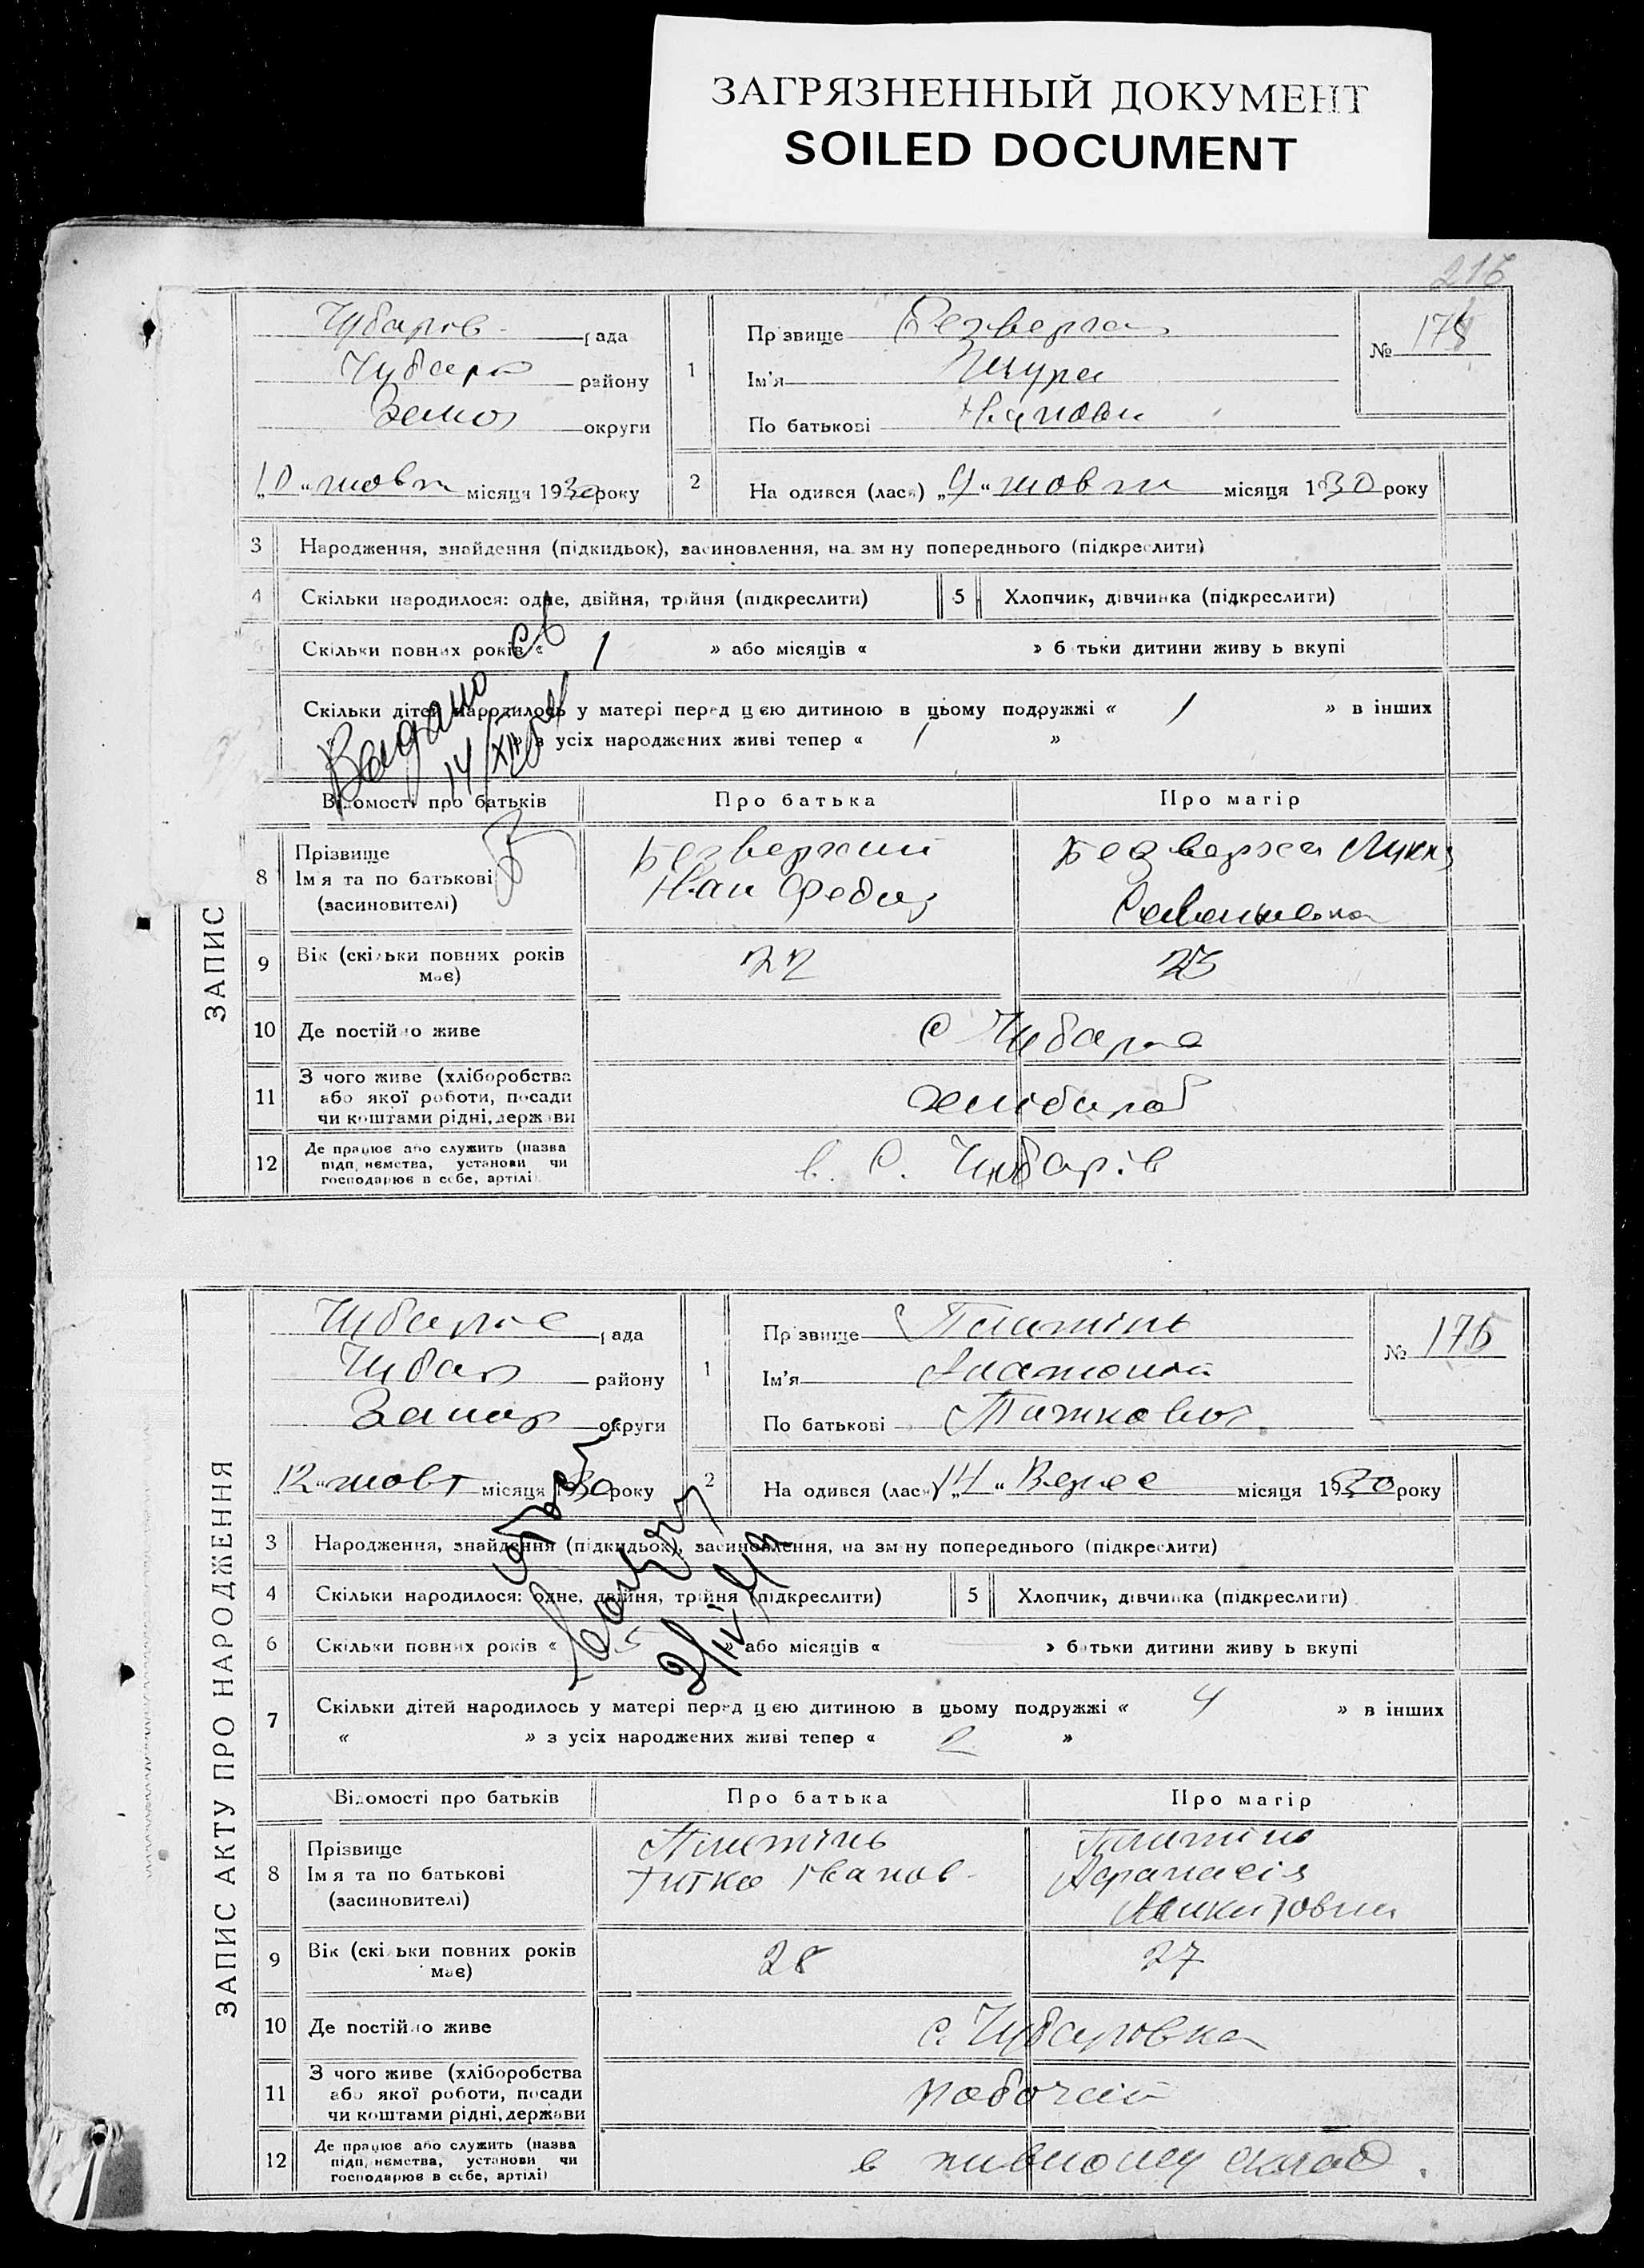 ЗАГРЯЗНЕННЫЙ ДОКУМЕНТ
SOILED DOCUMENT
216
Чубарів рада
району
округи
1
Прізвище
Ім'я
По батькові
№
„10“ жовт місяця 1930 року
2
На одився (лася) „4“ жовт місяця 1930 року
3 Народження, знайдення (підкидьок), засиновлення, на зм ну попереднього (підкреслити)
4 Скільки народилося: одне, двійня, трійня (підкреслити)
5 Хлопчик, дівчинка (підкреслити)
Скільки повних років « 1 » або місяців « » б тьки дитини живу ь вкупі
Скільки дітей народилось у матері перед цією дитиною в цьому подружжі « 1 » в інших
» з усіх народжених живі тепер « 1 »
Видано
14/XII
Відомості про батьків
Про батька
Про матір
ЗАПИС
8 Прізвище
Ім'я та по батькові
(засиновителі)
Безверхий
Иван Федор
Безверха
9 Вік (скільки повних років має)
22
23
10 Де постійно живе
с Чубарів
11 З чого живе (хліборобства
або якої роботи, посади
чи коштами рідні, держави
хлібороб
12 Де працює або служить (назва
підп. ємства, установи чи
господарює в себе, артілі)
в. с. Чубарів
ЗАПИС АКТУ ПРО НАРОДЖЕННЯ
рада
району
Запор округи
1
Прізвище Плитінь
Ім'я
По батькові Титкович
№ 175
„12“ жовт місяця 1930 року
2
На одився (лася) „14“ Верес місяця 1930 року
3 Народження, знайдення (підкидьок), засиновлення, на зм ну попереднього (підкреслити)
4 Скільки народилося: одне, двійня, трійня (підкреслити)
5 Хлопчик, дівчинка (підкреслити)
6 Скільки повних років « 5 » або місяців « » б тьки дитини живу ь вкупі
7 Скільки дітей народилось у матері перед цією дитиною в цьому подружжі « 4 » в інших
« » з усіх народжених живі тепер « 2 »
Відомості про батьків
Про батька
Про матір
8 Прізвище
Ім'я та по батькові
(засиновителі)
Плитінь
Титко Иванов
Плитінь
Афанасія
Микитовна
9 Вік (скільки повних років має)
28
27
10 Де постійно живе
с. Чубаровка
11 З чого живе (хліборобства
або якої роботи, посади
чи коштами рідні, держави
робочий
12 Де працює або служить (назва
підп. ємства, установи чи
господарює в себе, артілі)
в пивному склад